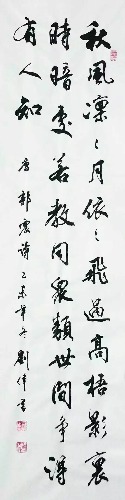 秋風凛〻月依〻飛過高梧影裏
時暗處若教同衆類世間爭得
有人知
唐郭震诗乙未年冬劉偉書